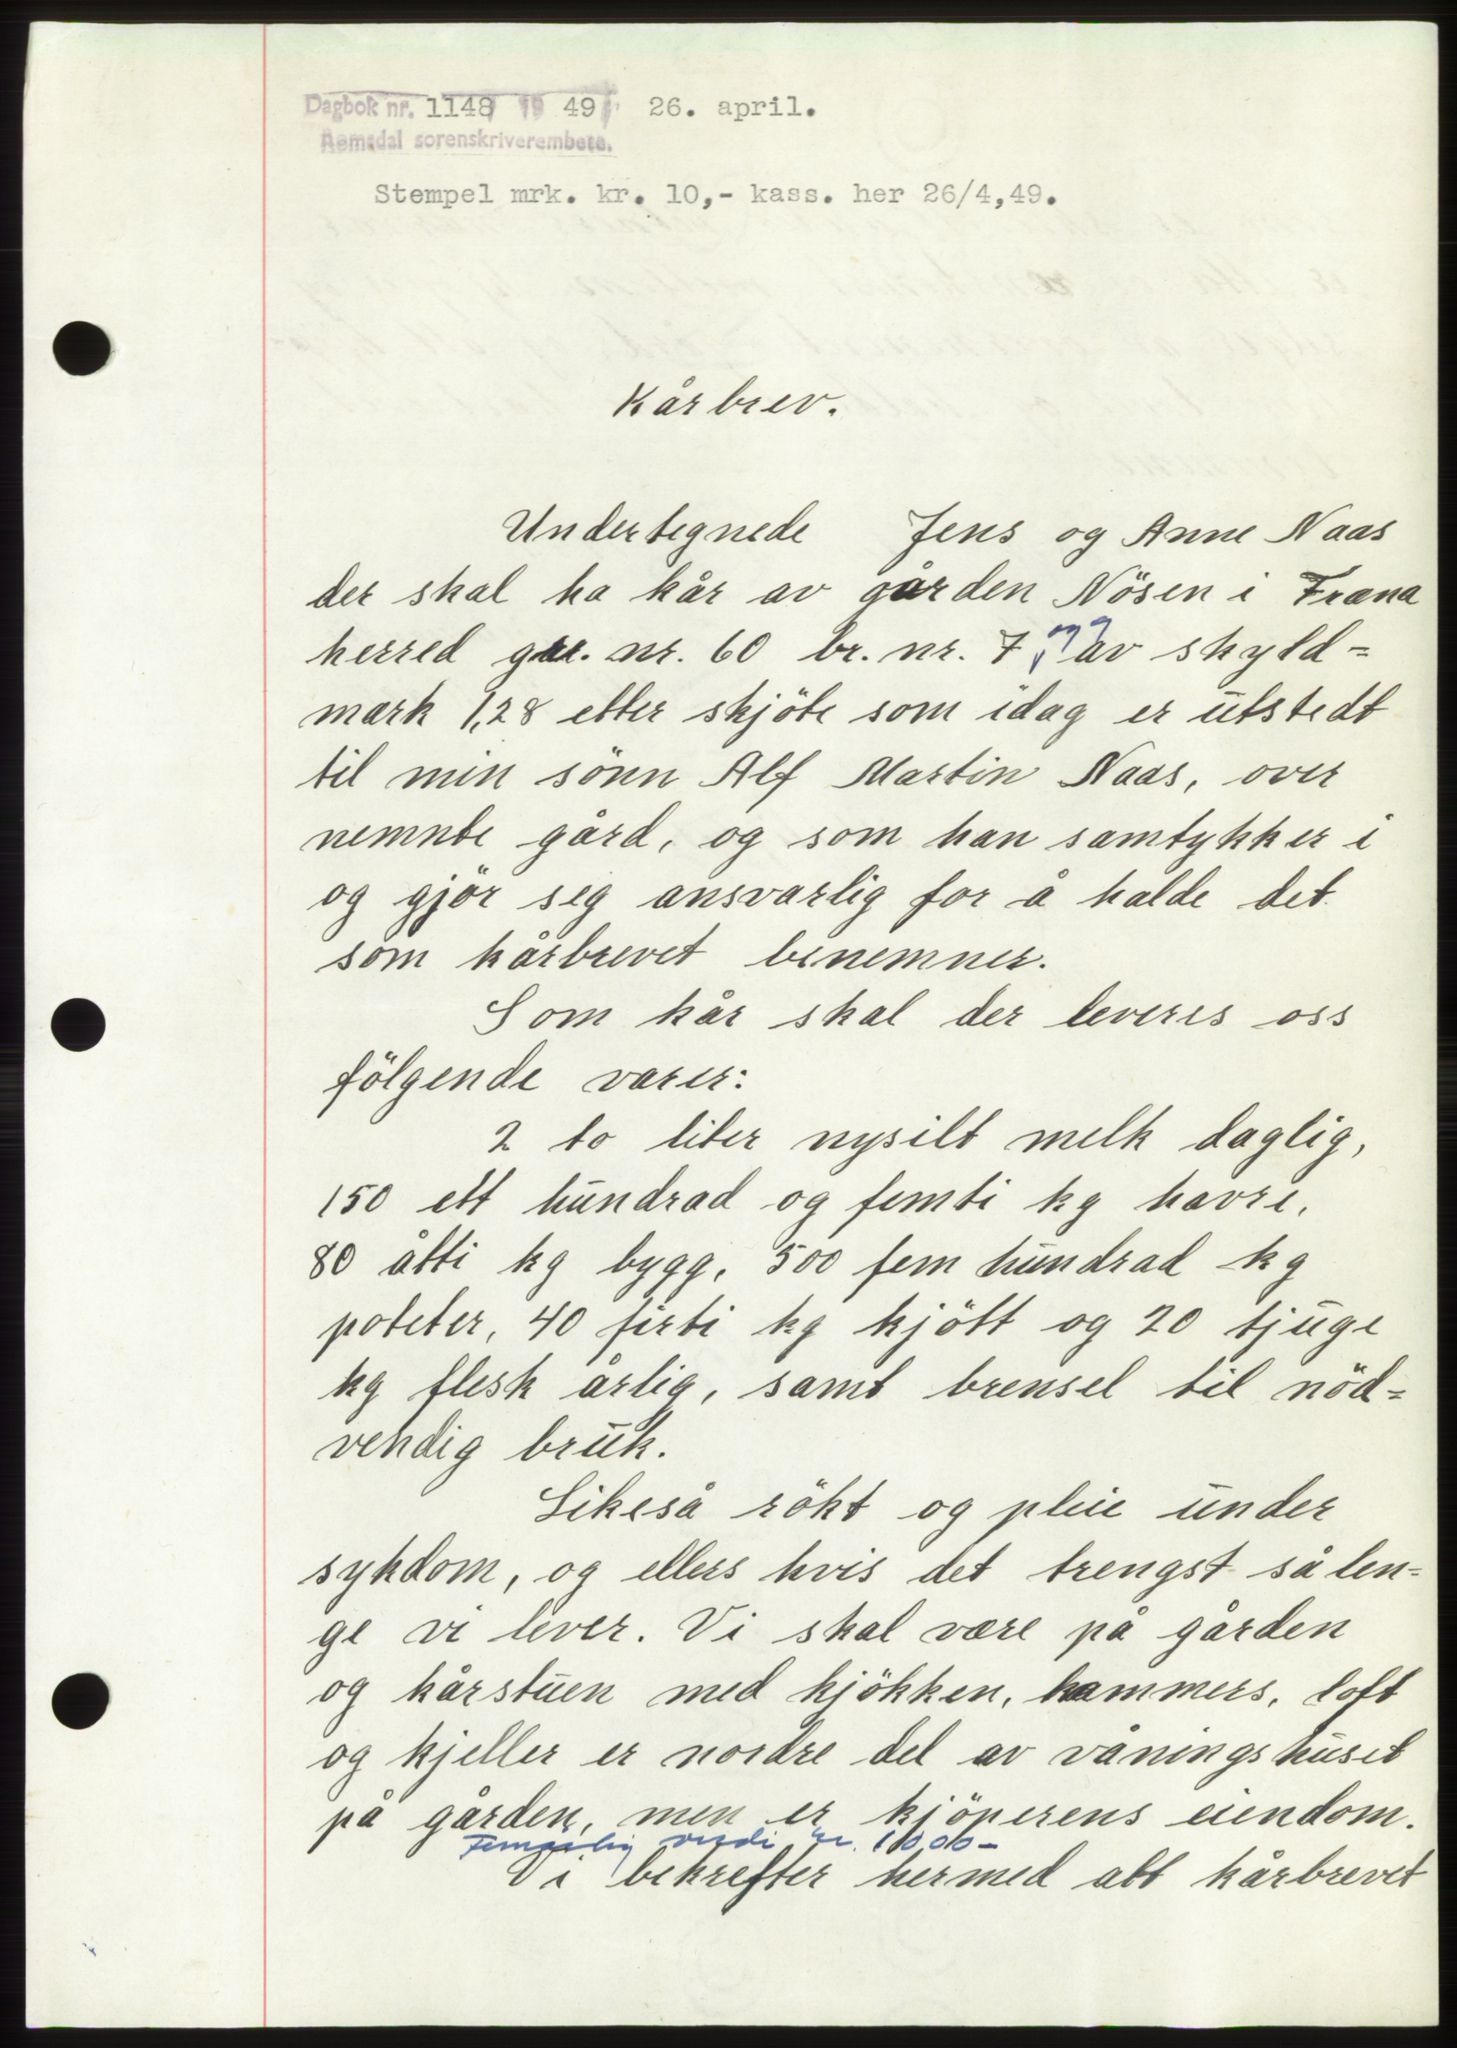 Dagbok nr. 1148 19 49 26. april.
Romsdal sorenskriverembete.
Stempel mrk. kr. 10,- kass. her 26/4,49.
Kårbrev.
Undertegnede Jens og Anne Naas
der skal ha kår av gården Nösen i Fræna
herred gr. nr. 60 br. nr. 7 og 9 av skyld=
mark 1,28 etter skjöte som idag er utstedt
til min sönn Alf Martin Naas, over
nemnte gård, og som han samtykker i
og gjör seg ansvarlig for å halde det
som kårbrevet benemner.
Som kår skal der leveres oss
fölgende varer:
2 to liter nysilt melk daglig,
150 ett hundrad og femti kg havre,
80 åtti kg bygg, 500 fem hundrad kg
poteter, 40 firti kg kjött og 20 tjuge
kg flesk årlig, samt brensel til nöd=
vendig bruk.
Likeså rökt og pleie under
sykdom, og ellers hvis det trengst så len=
ge vi lever. Vi skal være på gården
og kårstuen med kjökken, kammers, loft
og kjeller er nordre del av våningshuset
på gården, men er kjöperens eiendom.
Femårlig verdi kr. 1000-
Vi bekrefter hermed att kårbrevet